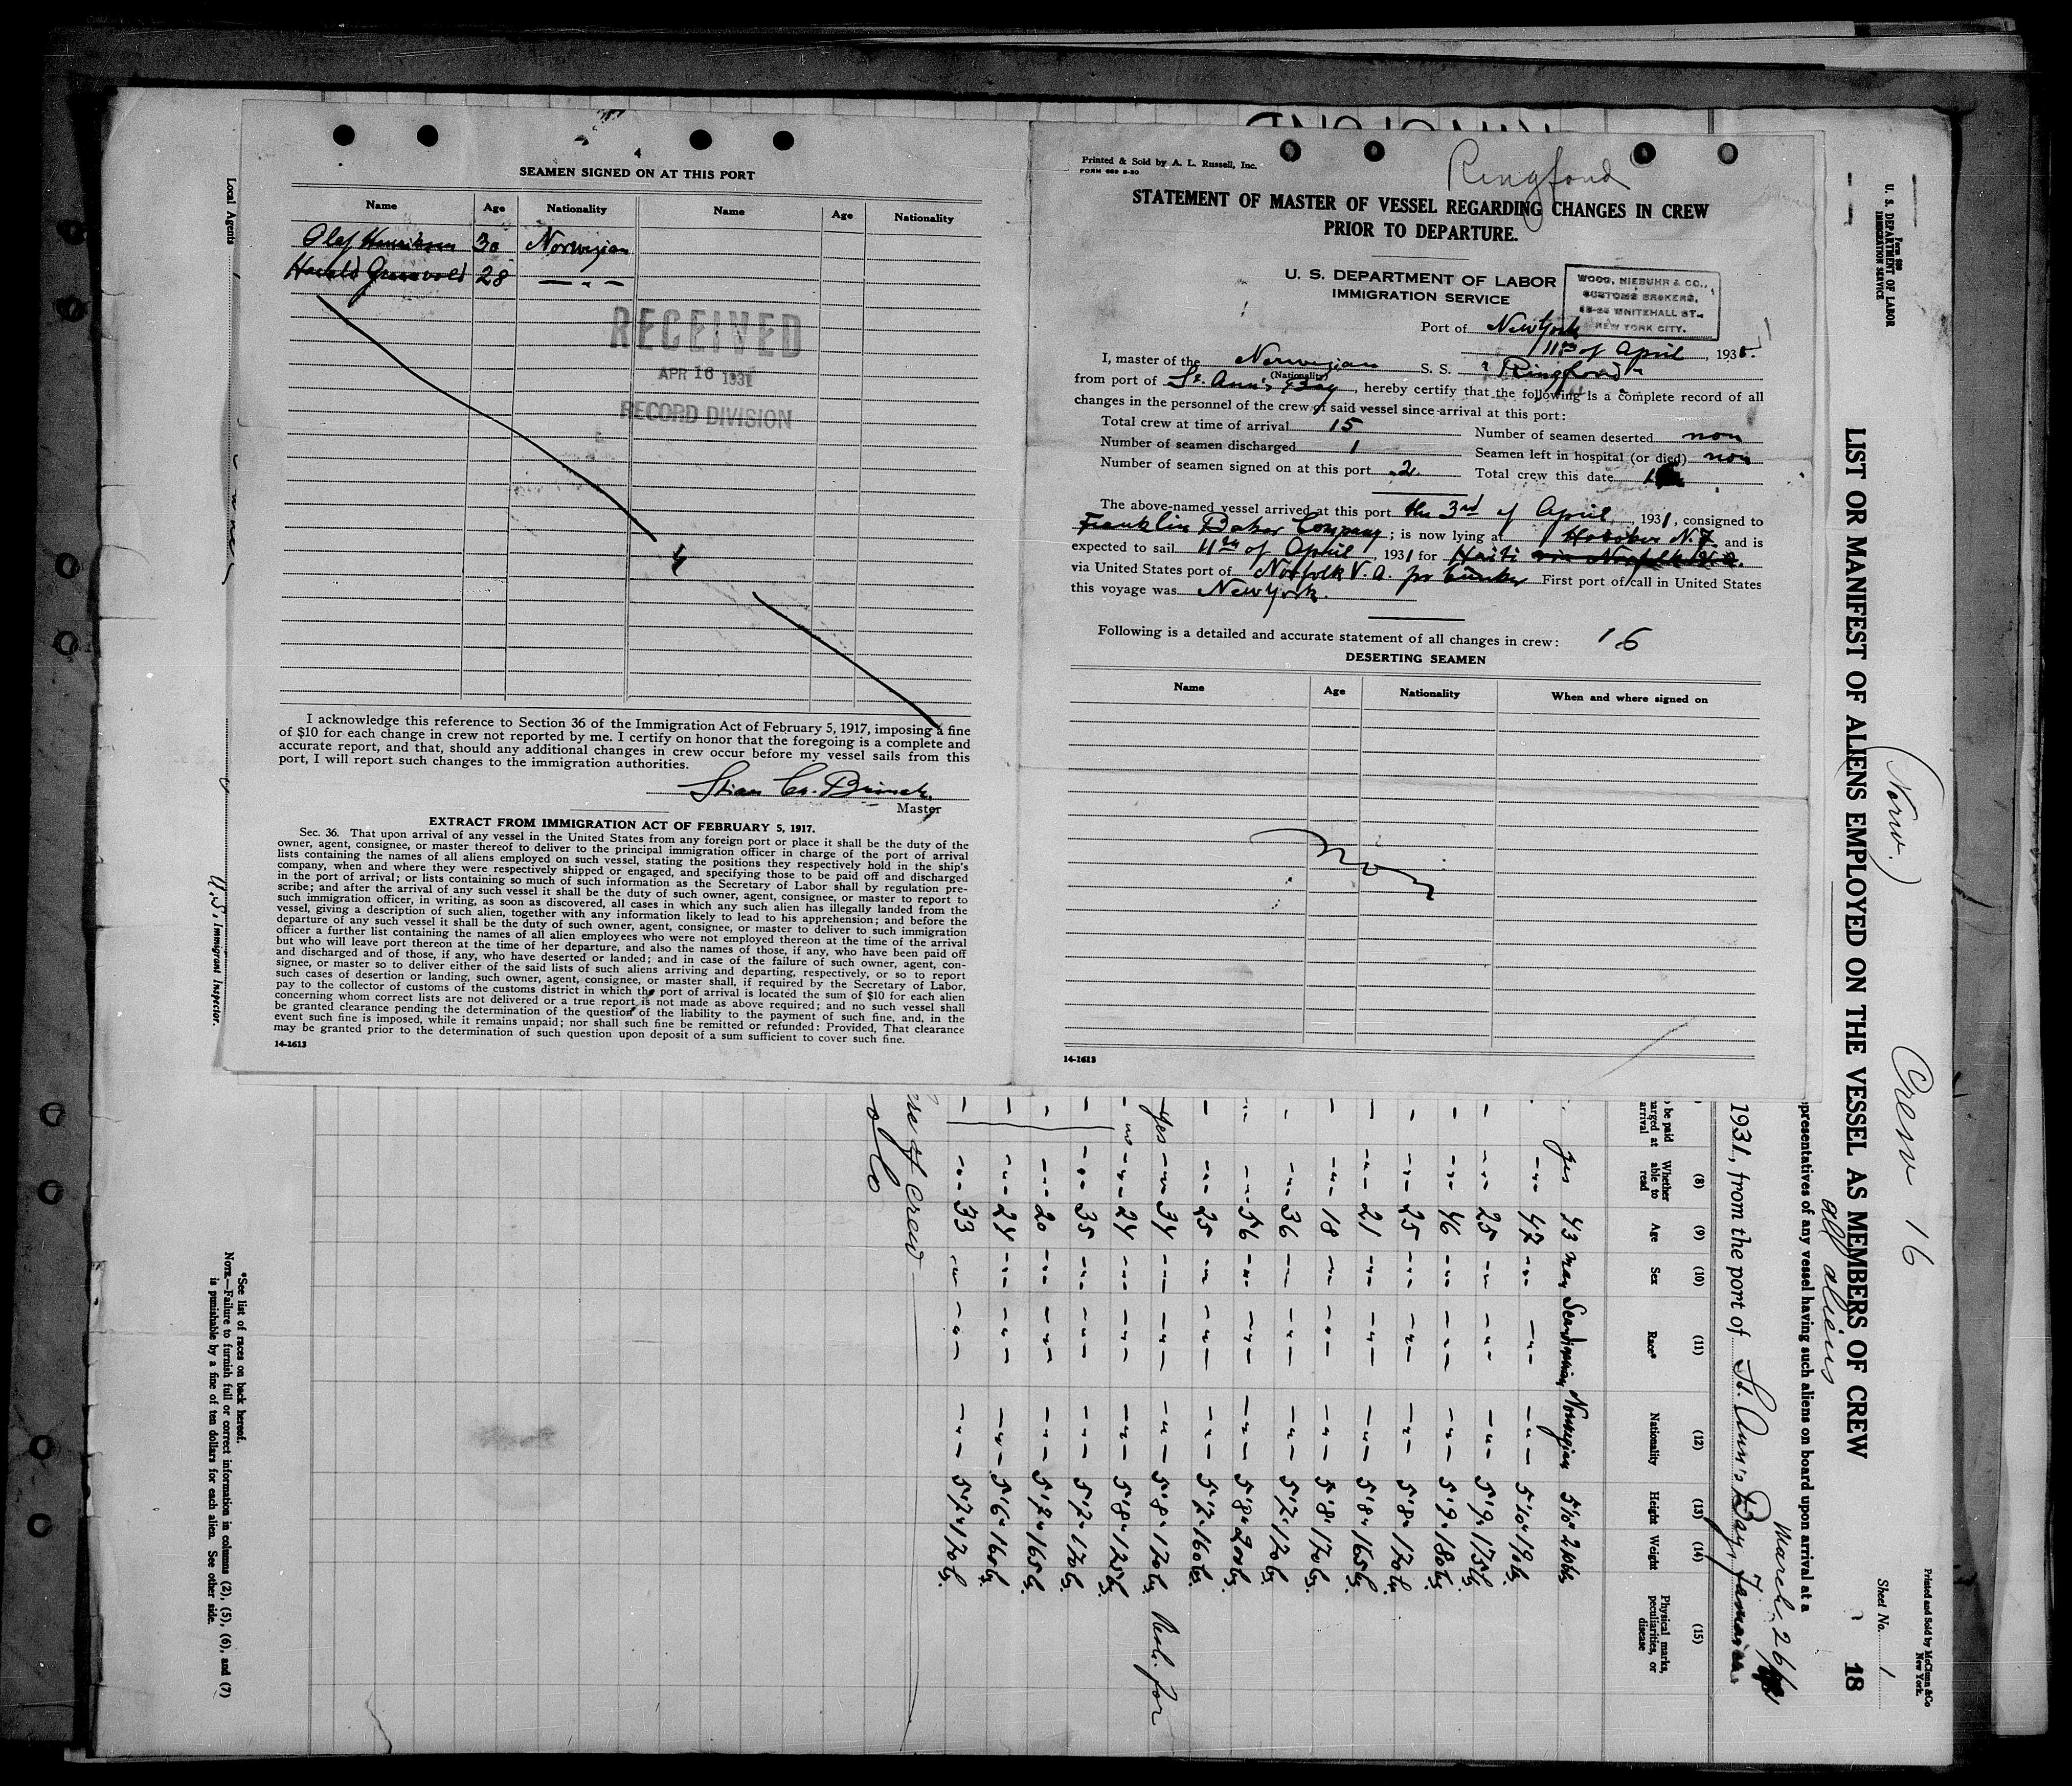 4
SEAMEN SIGNED ON AT THIS PORT
Name Age Nationality Name Age Nationality
Olaf Henriksen 30 Norwegian
28 — " —
RECEIVED
APR 16 1931
RECORD DIVISION
I acknowledge this reference to Section 36 of the Immigration Act of February 5, 1917, imposing a fine
of $10 for each change in crew not reported by me. I certify on honor that the foregoing is a complete and
accurate report, and that, should any additional changes in crew occur before my vessel sails from this
port, I will report such changes to the immigration authorities.
Master
EXTRACT FROM IMMIGRATION ACT OF FEBRUARY 5, 1917.
Sec. 36. That upon arrival of any vessel in the United States from any foreign port or place it shall be the duty of the
owner, agent, consignee, or master thereof to deliver to the principal immigration officer in charge of the port of arrival
lists containing the names of all aliens employed on such vessel, stating the positions they respectively hold in the ship's
company, when and where they were respectively shipped or engaged, and specifying those to be paid off and discharged
in the port of arrival; or lists containing so much of such information as the Secretary of Labor shall by regulation pre-
scribe; and after the arrival of any such vessel it shall be the duty of such owner, agent, consignee, or master to report to
such immigration officer, in writing, as soon as discovered, all cases in which any such alien has illegally landed from the
vessel, giving a description of such alien, together with any information likely to lead to his apprehension; and before the
departure of any such vessel it shall be the duty of such owner, agent, consignee, or master to deliver to such immigration
officer a further list containing the names of all alien employees who were not employed thereon at the time of the arrival
but who will leave port thereon at the time of her departure, and also the names of those, if any, who have been paid off
and discharged and of those, if any, who have deserted or landed; and in case of the failure of such owner, agent, con-
signee, or master so to deliver either of the said lists of such aliens arriving and departing, respectively, or so to report
such cases of desertion or landing, such owner, agent, consignee, or master shall, if required by the Secretary of Labor,
pay to the collector of customs of the customs district in which the port of arrival is located the sum of $10 for each alien
concerning whom correct lists are not delivered or a true report is not made as above required; and no such vessel shall
be granted clearance pending the determination of the question of the liability to the payment of such fine, and, in the
event such fine is imposed, while it remains unpaid; nor shall such fine be remitted or refunded: Provided, That clearance
may be granted prior to the determination of such question upon deposit of a sum sufficient to cover such fine.
14-1613
Printed & Sold by A. L. Russell, Inc.
FORM 689 8-30
Ringfond
STATEMENT OF MASTER OF VESSEL REGARDING CHANGES IN CREW
PRIOR TO DEPARTURE.
U. S. DEPARTMENT OF LABOR
IMMIGRATION SERVICE
WOOD, NIEBUHR & CO.,
CUSTOMS BROKERS,
WHITEHALL ST.
NEW YORK CITY.
Port of New York
11th of April, 193
I, master of the Norwegian S. S. "Ringfond"
(Nationality)
from port of St. Ann's Bay, hereby certify that the following is a complete record of all
changes in the personnel of the crew of said vessel since arrival at this port:
Total crew at time of arrival 15 Number of seamen deserted non
Number of seamen discharged 1 Seamen left in hospital (or died) non
Number of seamen signed on at this port 2 Total crew this date
The above-named vessel arrived at this port the 3rd of April, 1931, consigned to
Franklin Baker Company; is now lying at Hoboken N.J. and is
expected to sail 11th of April, 1931 for Haiti via Norfolk Va.
via United States port of Norfolk V. A. for bunker First port of call in United States
this voyage was New York.
Following is a detailed and accurate statement of all changes in crew: 16
DESERTING SEAMEN
Name Age Nationality When and where signed on
Non
14-1613
Local Agents
U.S. Immigrant Inspector.
Printed and Sold by McClunn & Co
New York.
Sheet No. 1
Form 689
U. S. DEPARTMENT OF LABOR
IMMIGRATION SERVICE
(Norw.) Crew 16
LIST OR MANIFEST OF ALIENS EMPLOYED ON THE VESSEL AS MEMBERS OF CREW 18
all aliens
presentatives of any vessel having such aliens on board upon arrival at a
March 26
1931, from the port of St. Ann's Bay, Jamaica
(8) (9) (10) (11) (12) (13) (14) (15)
be paid arged at arrival Whether able to read Age Sex Race* Nationality Height Weight Physical marks, peculiarities, or disease
yes 43 man Scandinavian Norwegian 5'10" 210 lbs
— " — 42 — " — — " — — " — 5'10" 190 lbs.
— " — 25 — " — — " — — " — 5'9" 175 lbs.
— " — 46 — " — — " — — " — 5'9" 180 lbs.
— " — 25 — " — — " — — " — 5'8" 170 lbs.
— " — 21 — " — — " — — " — 5'8" 165 lbs.
— " — 18 — " — — " — — " — 5'8" 170 lbs.
— " — 36 — " — — " — — " — 5'7" 170 lbs.
— " — 56 — " — — " — — " — 5'8" 200 lbs.
— " — 25 — " — — " — — " — 5'7" 160 lbs.
yes — " — 34 — " — — " — — " — 5'8" 170 lbs.
no — " — 24 — " — — " — — " — 5'8" 125 lbs.
— " — 35 — " — — " — — " — 5'7" 170 lbs.
— " — 20 — " — — " — — " — 5'7" 165 lbs.
— " — 24 — " — — " — — " — 5'6" 160 lbs.
— " — 33 — " — — " — — " — 5'7" 170 lbs.
of crew
*See list of races on back hereof.
NOTE.—Failure to furnish full or correct information in columns (2), (5), (6), and (7)
is punishable by a fine of ten dollars for each alien. See other side.